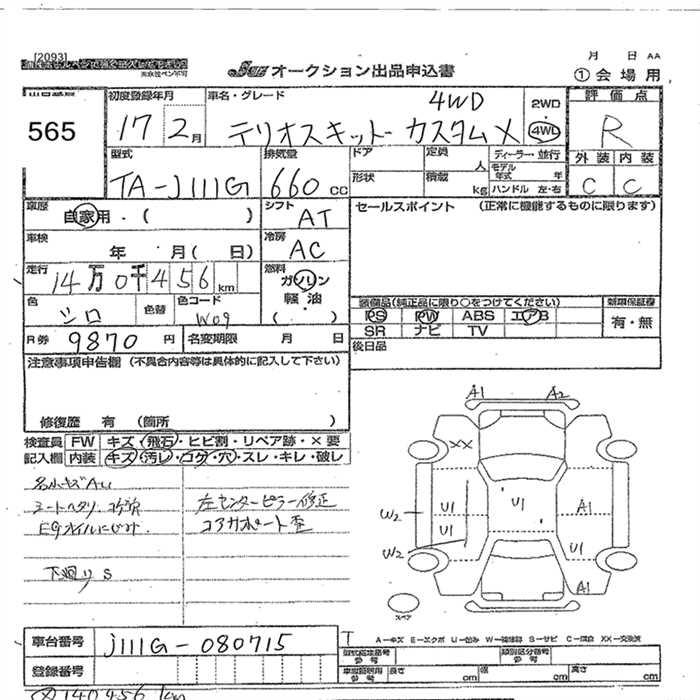 [2093]
油性ボールペン又は耐久ペンで記入
JU オークション出品申込書
月 日 AA
① 会場用
565
初度登録年月 17 2月
車名・グレード テリオスキッド カスタムX 4WD
2WD 4WD
評価点 R
型式 TA-J111G
排気量 660 cc
ドア 定員 人
形状 積載 kg
ディーラー・並行
モデル年式 年
ハンドル 左・右
外装 内装
C C
車歴 自家用・( )
シフト AT
セールスポイント (正常に機能するものに限ります)
車検 年 月( 日)
冷房 AC
走行 14万0千456km
燃料 ガソリン
軽油
( )
色 シロ 色替 色コード W09
装備品(純正品に限り○をつけてください)
新車保証書
PS PW ABS エアB
有・無
SR ナビ TV
R券 9870 円 名変期限 月 日
後日品
注意事項申告欄 (不具合内容等は具体的に記入して下さい)
修復歴 有 (箇所 )
検査員 FW キズ・飛石・ヒビ割・リペア跡・×要
記入欄 内装 キズ・汚レ・コゲ・穴・スレ・キレ・破レ
各小キズAU
シートヘタリ コゲ穴
EGオイルにじみ
下廻りS
左センターピラー修正
コアサポート歪
A1 A2
XX
U1 U1 A1
W2 U1
W2 U1
A1
スペア
A-キズ E-エクボ U-凹み W-補修跡 S-サビ C-腐食 XX-交換済
車台番号 J111G-080715
登録番号
型式指定番号 類別区分番号
参考 参考
長さ cm 幅 cm 高さ cm
140456 km